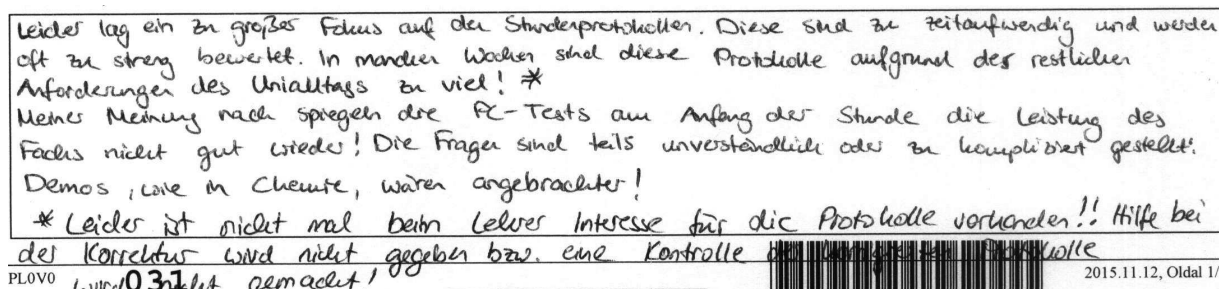 Leider lag ein zu großes Fokus auf den Stundenprotokollen. Diese sind zu zeitaufwendig und werden
oft zu streng bewertet. In manchen Wochen sind diese Protokolle aufgrund der restlichen
Anforderungen des Unialltags zu viel! *
Meiner Meinung nach spiegeln die PC-Tests am Anfang der Stunde die Leistung des
Fachs nicht gut wieder! Die Fragen sind teils unverständlich oder zu kompliziert gestellt!
Demos, wie in Chemie, wären angebrachter!
* Leider ist nicht mal beim Lehrer Interesse für die Protokolle vorhanden!! Hilfe bei
der Korrektur wird nicht gegeben bzw. eine Kontrolle der korrigierten Protokolle
PL0V0 wird 031 nicht gemacht! 2015.11.12, Oldal 1/